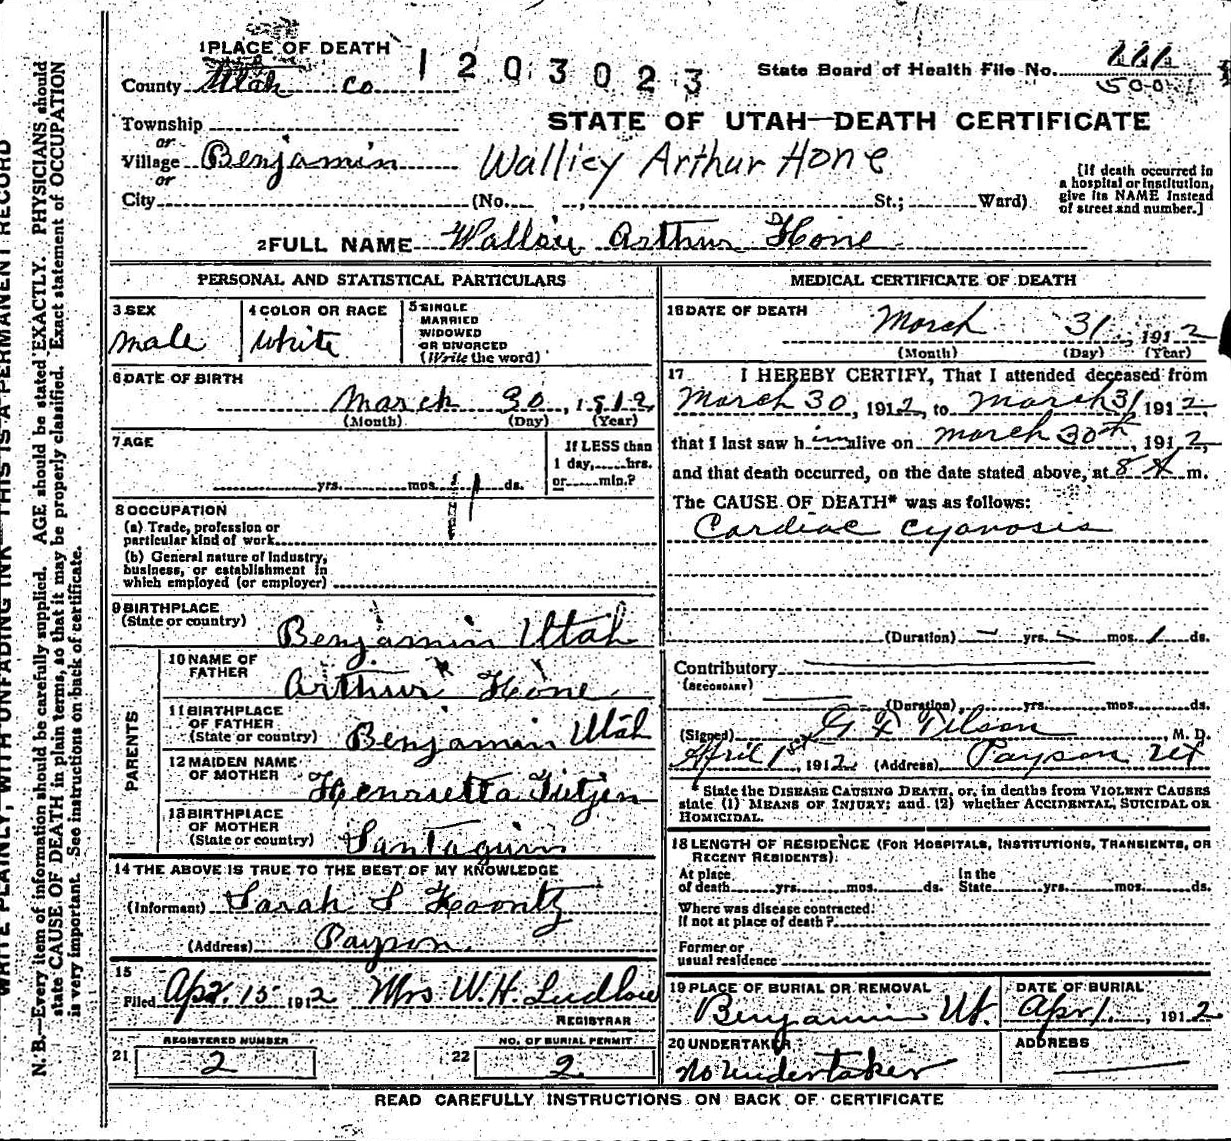 1 PLACE OF DEATH
1203023
State Board of Health File No. 111
County Utah Co
STATE OF UTAH—DEATH CERTIFICATE
Township
or
Village Benjamin
Wallicy Arthur Hone
or
City (No. , St.; Ward)
[If death occurred in
a hospital or institution,
give its NAME instead
of street and number.]
2 FULL NAME WallSie Arthur Hone
PERSONAL AND STATISTICAL PARTICULARS
3 SEX
male
4 COLOR OR RACE
White
5 SINGLE
MARRIED
WIDOWED
OR DIVORCED
(Write the word)
6 DATE OF BIRTH
March 30, 1912
(Month) (Day) (Year)
7 AGE
yrs. mos. 1 ds.
If LESS than
1 day, hrs.
or min.?
8 OCCUPATION
(a) Trade, profession or
particular kind of work
(b) General nature of industry,
business, or establishment in
which employed (or employer)
9 BIRTHPLACE
(State or country) Benjamin Utah
PARENTS
10 NAME OF
FATHER Arthur Hone
11 BIRTHPLACE
OF FATHER
(State or country) Benjamin Utah
12 MAIDEN NAME
OF MOTHER Henrietta Tietjen
13 BIRTHPLACE
OF MOTHER
(State or country) Santaquin
14 THE ABOVE IS TRUE TO THE BEST OF MY KNOWLEDGE
(Informant) Sarah S Koontz
(Address) Payson
15
Filed Apr. 15 1912 Mrs W.H. Ludlow
REGISTRAR
REGISTERED NUMBER
21 2
NO. OF BURIAL PERMIT
22 2
MEDICAL CERTIFICATE OF DEATH
16 DATE OF DEATH
March 31, 1912
(Month) (Day) (Year)
17 I HEREBY CERTIFY, That I attended deceased from
March 30, 1912, to March 31 1912,
that I last saw him alive on March 30th, 1912,
and that death occurred, on the date stated above, at 8 A m.
The CAUSE OF DEATH* was as follows:
Cardiac cyanosis
(Duration) — yrs — mos 1 ds.
Contributory
(SECONDARY)
(Duration) yrs. mos. ds.
(Signed) M. D.
April 1st, 1912 (Address) Payson Ut
*State the DISEASE CAUSING DEATH, or, in deaths from VIOLENT CAUSES
state (1) MEANS OF INJURY; and (2) whether ACCIDENTAL, SUICIDAL OR
HOMICIDAL.
18 LENGTH OF RESIDENCE (FOR HOSPITALS, INSTITUTIONS, TRANSIENTS, OR
RECENT RESIDENTS)
At place
of death yrs. mos. ds.
In the
State yrs. mos. ds.
Where was disease contracted
if not at place of death?
Former or
usual residence
19 PLACE OF BURIAL OR REMOVAL
Benjamin Ut.
DATE OF BURIAL
Apr 1, 1912
20 UNDERTAKER
No Undertaker
ADDRESS
READ CAREFULLY INSTRUCTIONS ON BACK OF CERTIFICATE
WRITE PLAINLY, WITH UNFADING INK—THIS IS A PERMANENT RECORD
N. B.—Every item of information should be carefully supplied. AGE should be stated EXACTLY. PHYSICIANS should
state CAUSE OF DEATH in plain terms, so that it may be properly classified. Exact statement of OCCUPATION
is very important. See instructions on back of certificate.